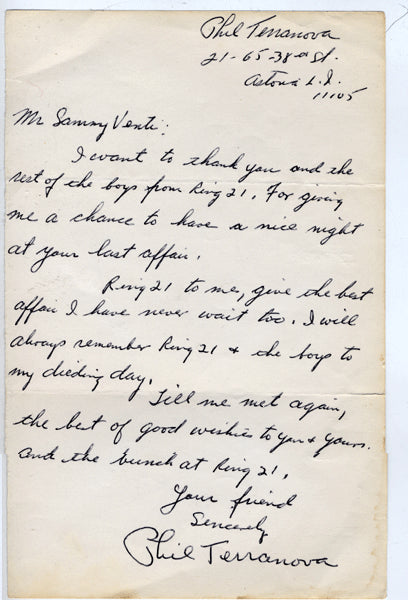 Phil Terranova
21-65-38th St.
Astoria L.I.
11105
Mr Sammy Venti:
I want to thank you and the
rest of the boys from Ring 21. For giving
me a chance to have a nice night
at your last affair.
Ring 21 to me, give the best
affair I have never wait too. I will
always remember Ring 21 + the boys to
my dieding day.
Till me met again,
the best of good wishies to you + yours.
and the bunch at Ring 21.
Your friend
Sencerely
Phil Terranova